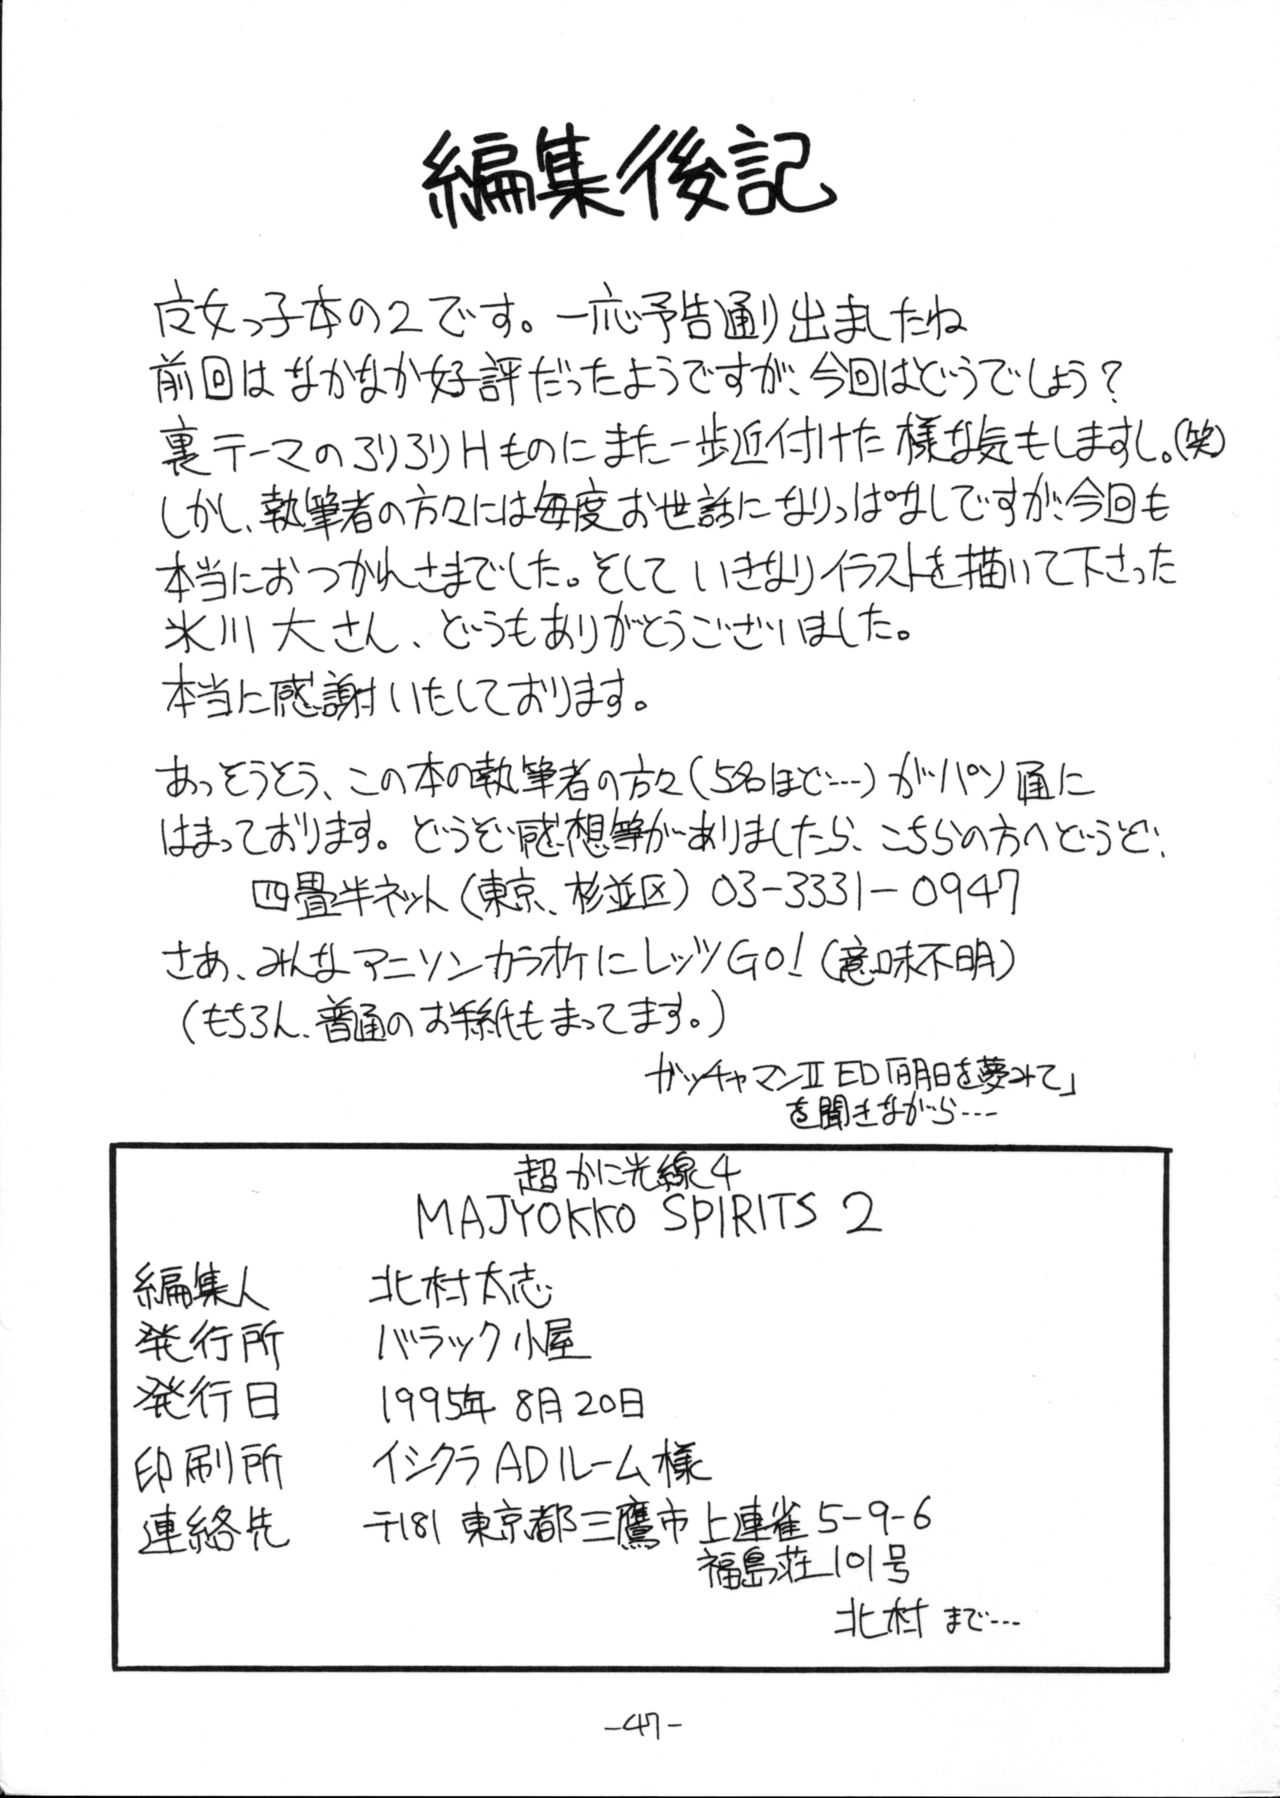 編集後記
魔女っ子本の2です。一応予告通り出ましたね
前回はなかなか好評だったようですが、今回はどうでしょう?
裏テーマのろりろりHものにまた一歩近付けた様な気もしますし。(笑)
しかし、執筆者の方々には毎度お世話になりっぱなしですが、今回も
本当におつかれさまでした。そしていきなりイラストを描いて下さった
氷川大さん、どうもありがとうございました。
本当に感謝いたしております。
あっそうそう、この本の執筆者の方々(5名ほど…)がパソ通に
はまっております。どうぞ感想等がありましたら、こちらの方へどうぞ、
四畳半ネット(東京、杉並区)03-3331-0947
さあ、みんなアニソンカラオケにレッツGO!(意味不明)
(もちろん、普通のお手紙もまってます。)
ガッチャマンII ED「明日を夢みて」
を聞きながら…
超かに光線4
MAJYOKKO SPIRITS 2
編集人 北村太志
発行所 バラック小屋
発行日 1995年8月20日
印刷所 イシクラADルーム様
連絡先 〒181 東京都三鷹市上連雀5-9-6
福島荘101号
北村まで…
-47-